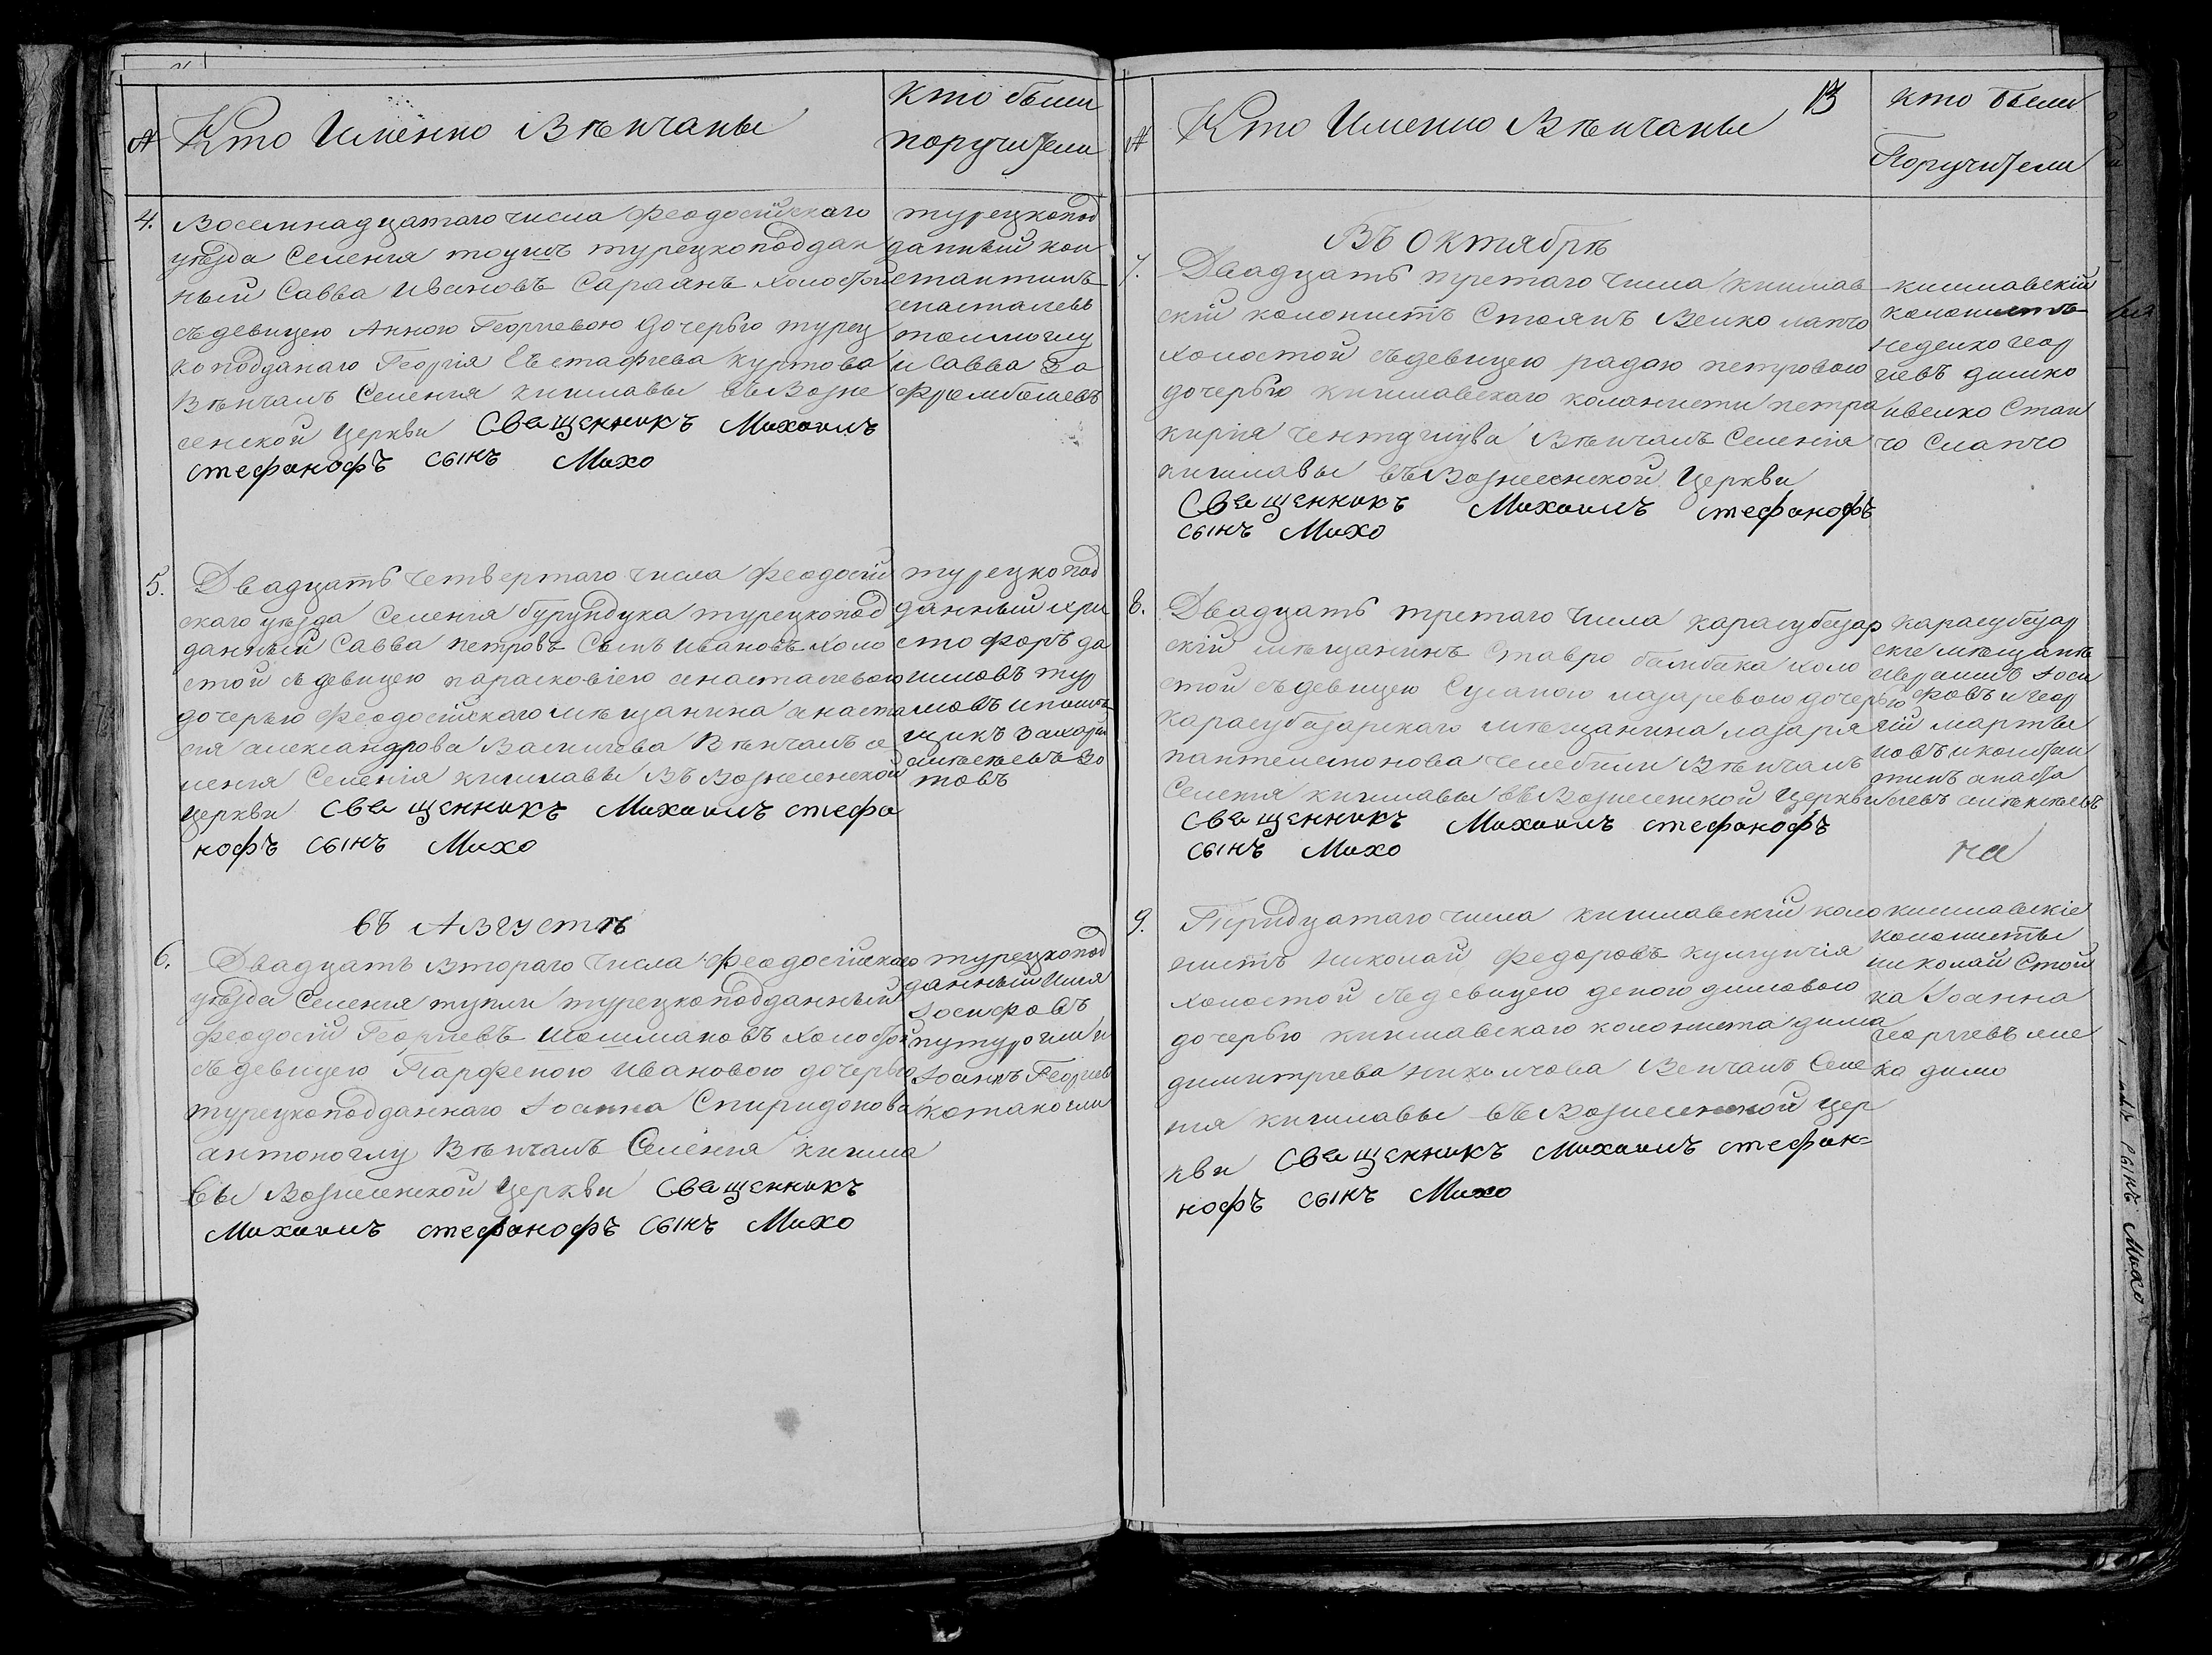 №
Кто Именно Вѣнчаны
кто были
поручители
4.
Восемнадцатаго числа феодосійскаго
уѣзда Селенія тоушъ турецкоподдан
ный Савва Ивановъ Сараянъ холостой
съ девицею Анною Георгіевою дочерью турец
коподданаго Георгія Евстафиева куртова
Вѣнчалъ Селенія кишлавы въ Возне
сенской Церкви Священникъ Михаилъ
стефанофъ сынъ Михо
турецкопод
данный кон
стантинъ
анастасіевъ
и Савва
5.
Двадцать четвертаго числа феодосій
скаго уѣзда Селенія бурундука турецкопод
данный Савва петровъ Сынъ Ивановъ холо
стой съ девицею параскевіею анастасіевою
дочерью феодосійскаго мѣщанина анаста
сія александрова Васильева Вѣнчалъ се
ленія Селенія кишлавы Въ Вознесенской
церкви Священникъ Михаилъ стефа
нофъ сынъ Михо
турецкопод
данный хри
стофоръ да
ниловъ
въ Августѣ
6.
Двадцать Втораго числа феодосійскаго
уѣзда Селенія тупли турецкоподданный
феодосій Георгіевъ Шошмановъ холостой
съ девицею Парфеною Ивановою дочерью
турецкоподданнаго Іоанна Спиридонова
антоноглу Вѣнчалъ Селенія кишла
вы Вознесенской Церкви Священникъ
Михаилъ стефанофъ сынъ Михо
турецкопод
данный Илія
Іосифовъ
Іоаннъ Георгіев
№
Кто Именно Вѣнчаны
13
кто были
Поручители
Въ Октябрѣ
7.
Двадцать третаго числа кишлав
скій колонистъ Стоянъ Велко ланчо
холостой съ девицею радою петровою
дочерью кишлавскаго колонисти петра
кирія Вѣнчалъ Селенія
кишлавы въ Вознесенской Церкви
Священникъ Михаилъ стефанофъ
сынъ Михо
кишлавскій
колонистъ
неделко геор
гіевъ димко
ивелко Стан
чо Сланчо
8.
Двадцать третаго числа карасубазар
скій мѣщанинъ Ставро бамбака холо
стой съ девицею Сусаною лазаревою дочерью
карасубазарскаго мѣщанина лазаря
пантелемонова челебили Вѣнчалъ
Селенія кишлавы въ Вознесенской Церкви
Священникъ Михаилъ стефанофъ
сынъ Михо
карасубазар
скіе мѣщане
Авраамъ Іоси
фовъ и геор
гій марты
новъ и констан
тинъ анаста
9.
Тридцатаго числа кишлавскій коло
нистъ Николай федоровъ
холостой съ девицею деною димовою
дочерью кишлавскаго колониста дима
димитриева Николчова Венчалъ Селе
нія кишлавы въ Вознесенской цер
кви Священникъ Михаилъ стефан=
нофъ сынъ Михо
кишлавскіе
колонисты
николай Стой
ка Іоанна
георгіевъ
ка димо
сынъ Михо